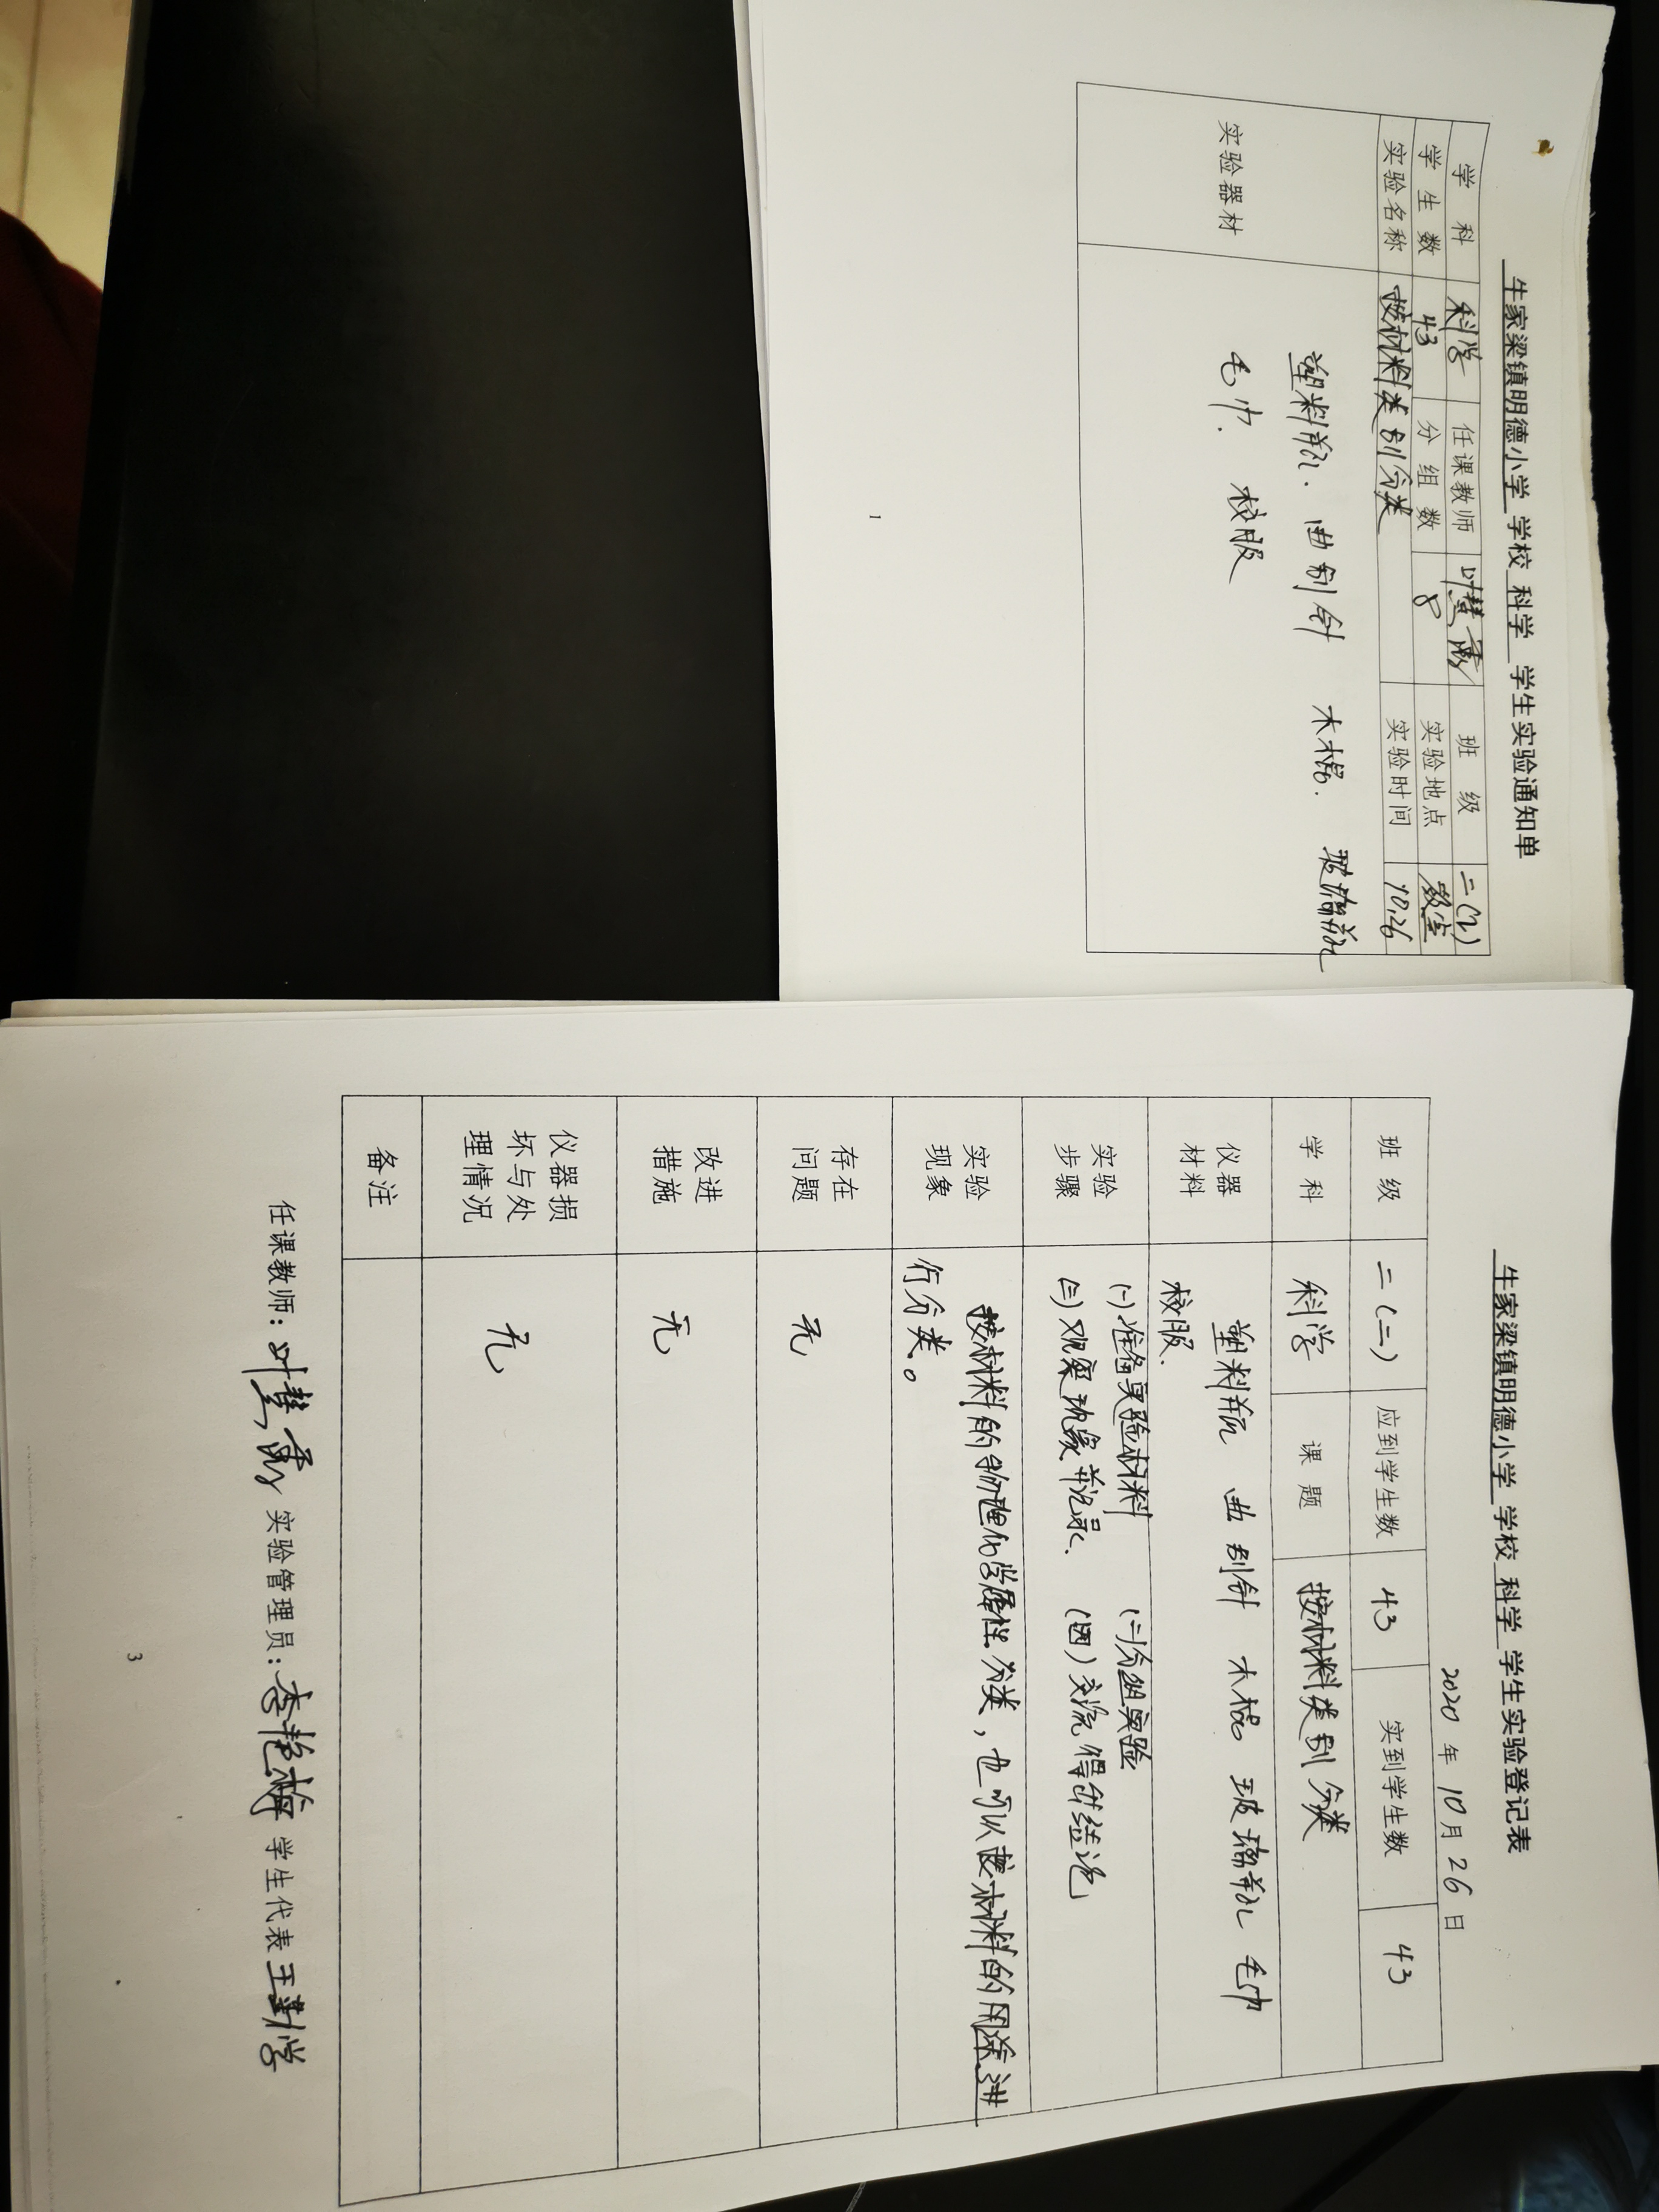 牛家梁镇明德小学 学校 科学 学生实验通知单
学科 科学 任课教师 叶慧 班级 二(2)
学生数 43 分组数 8 实验地点 教室
实验名称 按材料类别分类 实验时间 10.26
实验器材
塑料瓶. 曲别针 木棍. 玻璃瓶
毛巾. 校服
1
牛家梁镇明德小学 学校 科学 学生实验登记表
2020 年 10 月 26 日
班级 二(二) 应到学生数 43 实到学生数 43
学科 科学 课题 按材料类别分类
仪器
材料
塑料瓶 曲别针 木棍 玻璃瓶 毛巾
校服.
实验
步骤
(一)准备实验材料 (二)分组实验
(三)观察现象并记录. (四)交流得出结论
实验
现象
按材料的物理化学属性分类,也可以按材料的用途进
行分类。
存在
问题
无
改进
措施
无
仪器损
坏与处
理情况
无
备注
任课教师:叶慧 实验管理员:李艳梅 学生代表 王学
3